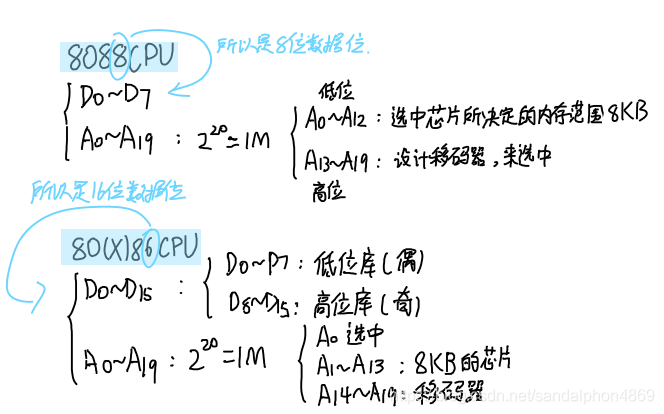 所以是8位数据位.
8088CPU
D0~D7
A0~A19 : 2^20=1M
低位
A0~A12 : 选中芯片所决定的内存范围8KB
A13~A19 : 设计移码器,来选中
高位
所以是16位数据位
80(X)86CPU
D0~D15 :
D0~D7 : 低位库(偶)
D8~D15: 高位库(奇)
A0~A19 : 2^20=1M
A0 选中
A1~A13 : 8KB的芯片
A14~A19: 移码器
csdn.net/sandalphon4869